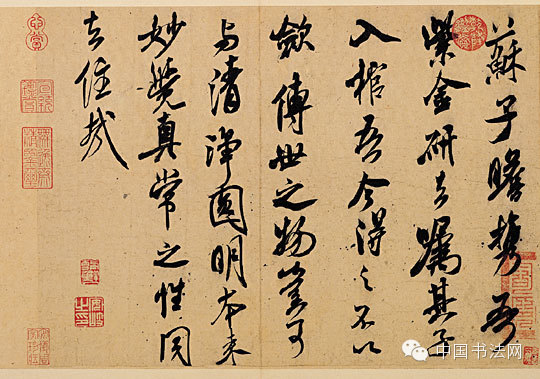 蘇子瞻携吾
紫金研去嘱其子
入棺吾今得之不以
斂傳世之物豈可
与清淨圓明本来
妙覺真常之性同
去住哉
中国书法网